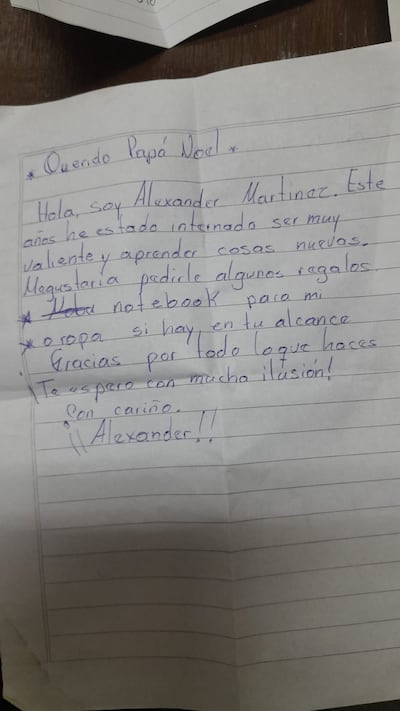 * Querido Papá Noel *
Hola, soy Alexander Martinez. Este
años he estado internado ser muy
valiente y aprender cosas nuevas.
Megustaria pedirle algunos regalos.
* notebook para mi
* oropa si hay en tu alcance
Gracias por todo loque haces
¡Te espero con mucha ilusión!
Con cariño.
¡¡Alexander!!